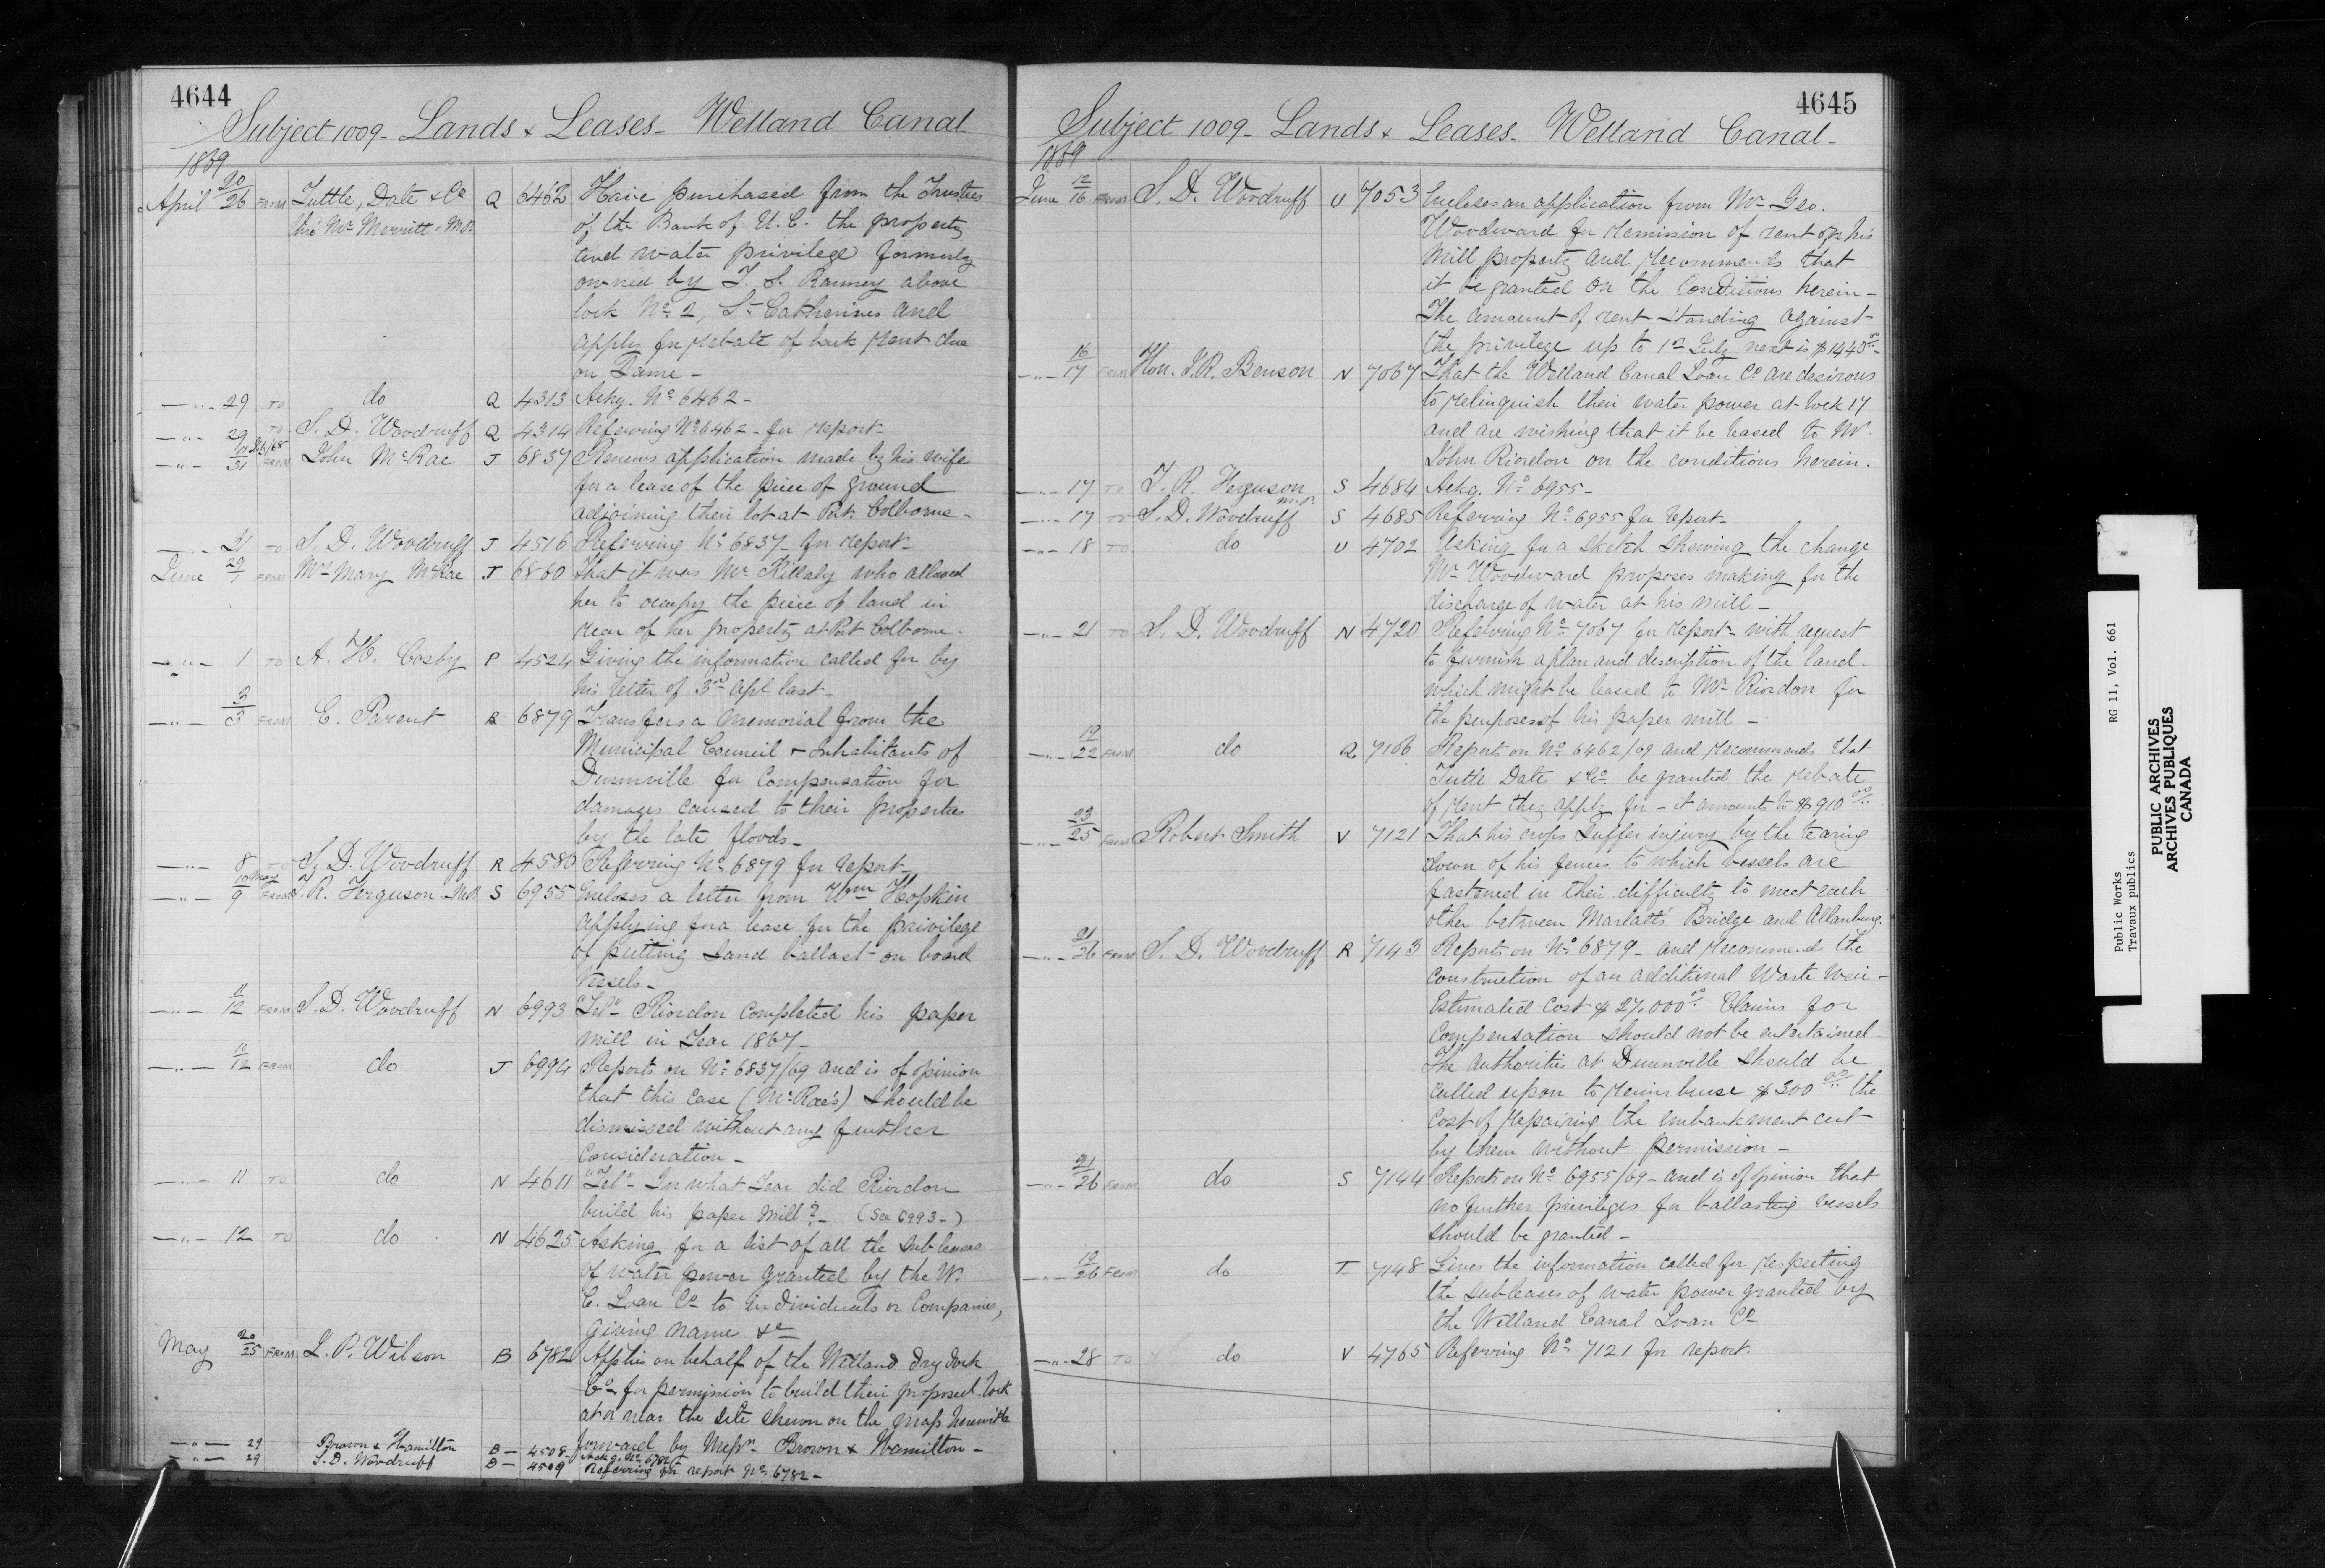 4644
Subject 1009 - Lands & Leases - Welland Canal
1869
April 20/26 FROM Tuttle, Date & Co Q 6462 Have purchased from the Trustees
thro' Mr Merritt. M.P. of the Bank of U.C. the property
and water privilege formerly
owned by T. S. Ranney above
lock No 2, St Catharines and
apply for rebate of back rent due
on Same -
—"— 29 TO do Q 4313 Ackg. No 6462 -
—"— 29 TO S. D. Woodruff Q 4314 Referring No 6462 - for report -
—"— /31 FROM John McRae J 6837 Renews application made by his wife
for a lease of the piece of ground
adjoining their lot at Port Colborne -
—"— 31 TO S. D. Woodruff J 4516 Referring No 6837 - for report -
June 29/1 FROM Mrs Mary McRae J 6860 That it was Mr Killaly who allowed
her to occupy the piece of land in
rear of her property at Port Colborne -
—"— 1 TO A. H. Cosby P 4524 Giving the information called for by
his letter of 3rd Apl last -
—"— 2/3 FROM E. Parent R 6879 Transfers a memorial from the
Municipal Council & Inhabitants of
Dunnville for Compensation for
damages caused to their properties
by the late floods -
—"— 8 TO S. D. Woodruff R 4580 Referring No 6879 for report -
—"— 10 May/9 FROM T. R. Ferguson M.P. S 6955 Encloses a letter from Wm Hopkin
applying for a lease for the privilege
of putting Sand ballast on board
Vessels -
—"— 11/12 FROM S. D. Woodruff N 6993 "Teln" Riordon completed his paper
mill in Year 1867 -
—"— /12 FROM do J 6994 Reports on No 6837/69 and is of opinion
that this Case (McRae's) should be
dismissed without any further
Consideration -
—"— 11 TO do N 4611 "Teln" In what Year did Riordon
build his paper mill? - (See 6993 -)
—"— 12 TO do N 4625 Asking for a list of all the sub leases
of water power granted by the W.
C. Loan Co to individuals or Companies,
giving name &c
May 20/25 FROM L. P. Wilson B 6782 Applies on behalf of the Welland Dry dock
Co - for permission to build their proposed dock
at or near the site shewn on the map herewith
forward by Messrs Brown & Hamilton -
—"— 29 Brown & Hamilton B — 4508 - Ackg. No 6782
—"— 29 S. D. Woodruff B — 4509 Referring for report No 6782 -
4645
Subject 1009 - Lands & Leases - Welland Canal -
1869
June 12/16 FROM S. D. Woodruff U 7053 Encloses an application from Mr Geo.
Woodward for remission of rent on his
Mill property and recommends that
it be granted on the Conditions herein -
The amount of rent standing against
the privilege up to 1st July next is $1440.00 -
—"— 16/17 FROM Hon. J. R. Benson N 7067 That the Welland Canal Loan Co are desirous
to relinquish their water power at lock 17
and are wishing that it be leased to Mr.
John Riordon on the conditions herein.
—"— 17 TO T. R. Ferguson M.P. S 4684 Ackg. No 6955 -
—"— 17 TO S. D. Woodruff S 4685 Referring No 6955 for report -
—"— 18 TO do U 4702 Asking for a sketch shewing the change
Mr Woodward proposes making for the
discharge of water at his mill -
—"— 21 TO S. D. Woodruff N 4720 Referring No 7067 for report - with request
to furnish a plan and description of the land -
which might be leased to Mr Riordon for
the purposes of his paper mill -
—"— 19/22 FROM do Q 7106 Reports on No 6462/69 and recommends that
Tuttle Date & Co be granted the rebate
of rent they apply for - it amounts to $910.00
—"— 23/25 FROM Robert Smith V 7121 That his crops suffer injury by the tearing
down of his fences to which vessels are
fastened in their difficulty to meet each
other between Marlatt's Bridge and Allanburg.
—"— 21/26 FROM S. D. Woodruff R 7143 Reports on No 6879 - and recommends the
Construction of an additional Waste Weir -
Estimated Cost $27,000.00 Claims for
Compensation should not be entertained -
The Authorities at Dunnville should be
called upon to reimburse $300.00 the
Cost of repairing the embankment cut
by them without permission -
—"— 21/26 FROM do S 7144 Reports on No 6955/69 - and is of opinion that
no further privileges for ballasting vessels
should be granted -
—"— 19/26 FROM do T 7148 Gives the information called for respecting
the subleases of water power granted by
the Welland Canal Loan Co
—"— 28 TO do V 4765 Referring No 7121 for report.
Public Works RG 11, Vol. 661
Travaux publics
PUBLIC ARCHIVES
ARCHIVES PUBLIQUES
CANADA